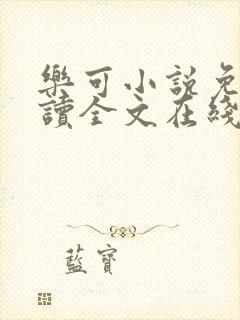 樂可小說免
讀全文在綫
藍寶